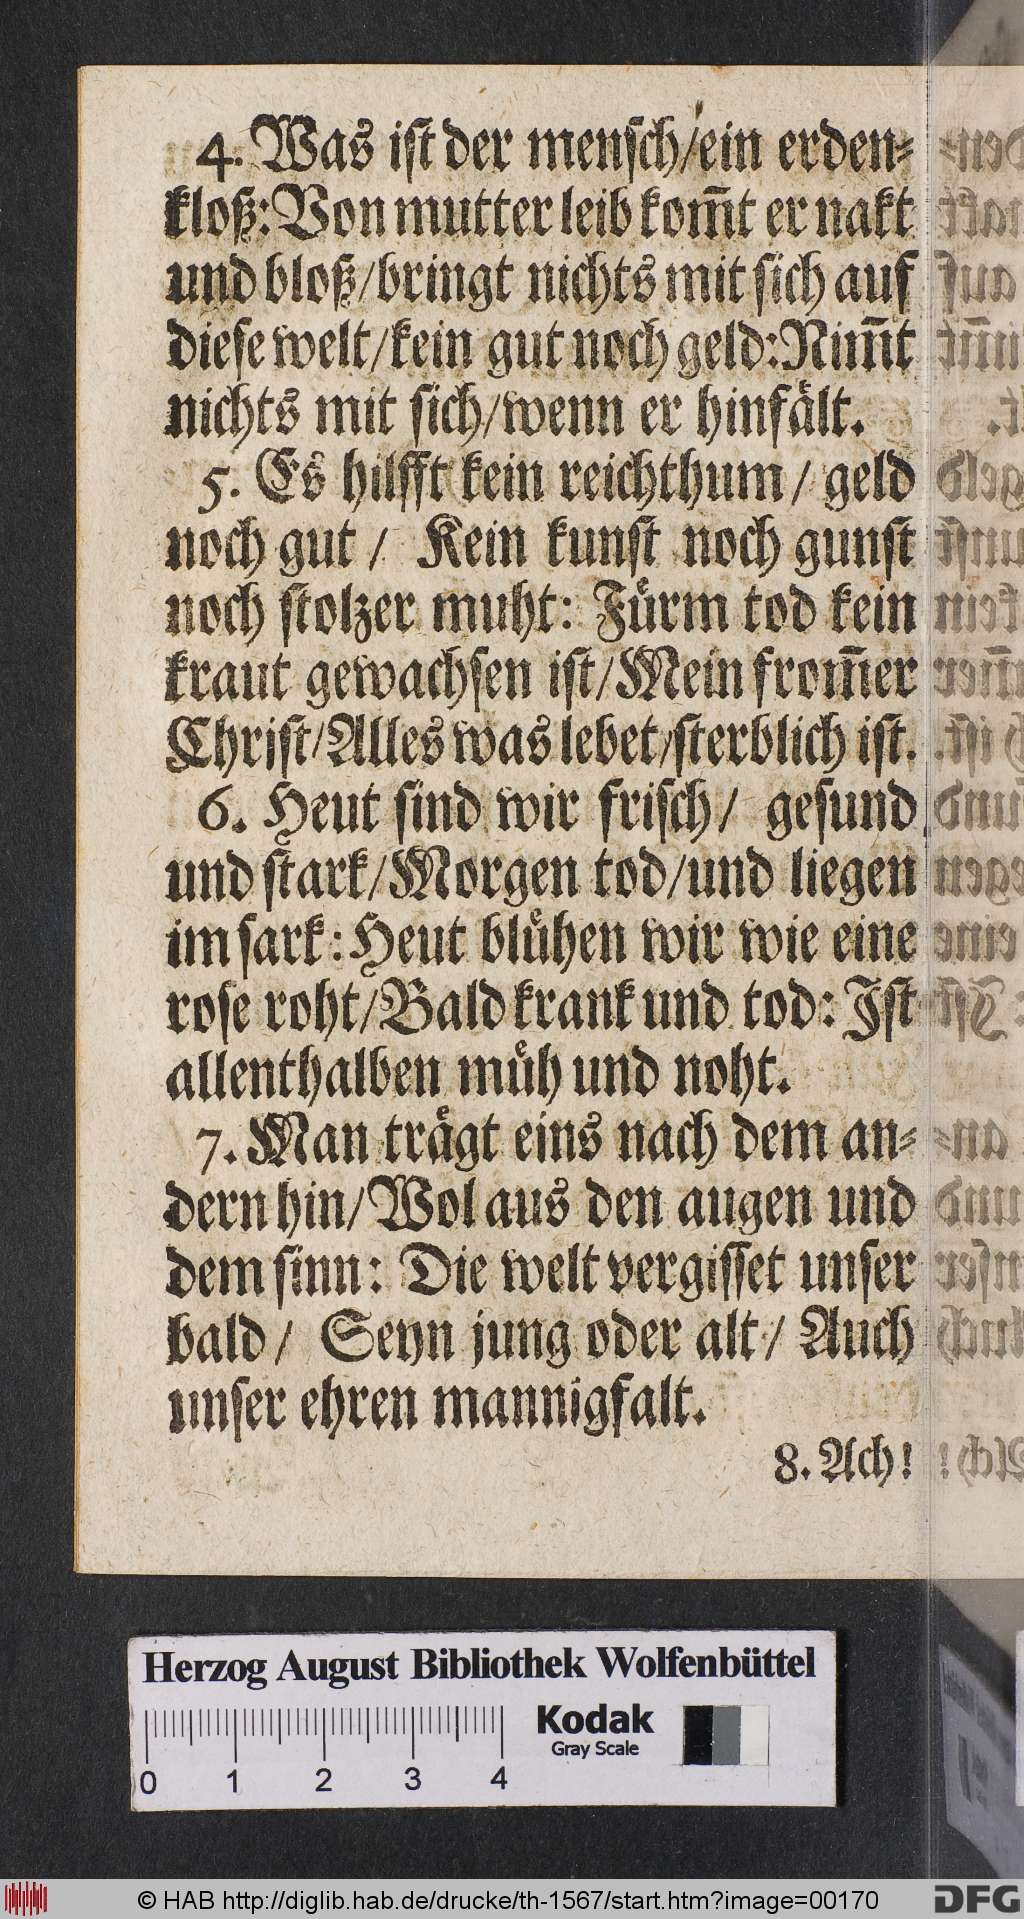 4. Was ist der mensch/ein erden⸗
kloß: Von mutter leib kom̃t er nakt
und bloß/bringt nichts mit sich auf
diese welt/kein gut noch geld: Nim̃t
nichts mit sich/wenn er hinfaͤlt.
5. Es hilfft kein reichthum/ geld
noch gut/ Kein kunst noch gunst
noch stolzer muht: Fuͤrm tod kein
kraut gewachsen ist/Mein from̃er
Christ/Alles was lebet/sterblich ist.
6. Heut sind wir frisch/ gesund
und stark/Morgen tod/und liegen
im sark: Heut bluͤhen wir wie eine
rose roht/Bald krank und tod: Ist
allenthalben muͤh und noht.
7. Man traͤgt eins nach dem an⸗
dern hin/Wol aus den augen und
dem sinn: Die welt vergisset unser
bald/ Seyn jung oder alt/ Auch
unser ehren mannigfalt.
8. Ach!
Herzog August Bibliothek Wolfenbüttel
Kodak
Gray Scale
0 1 2 3 4
© HAB http://diglib.hab.de/drucke/th-1567/start.htm?image=00170
DFG